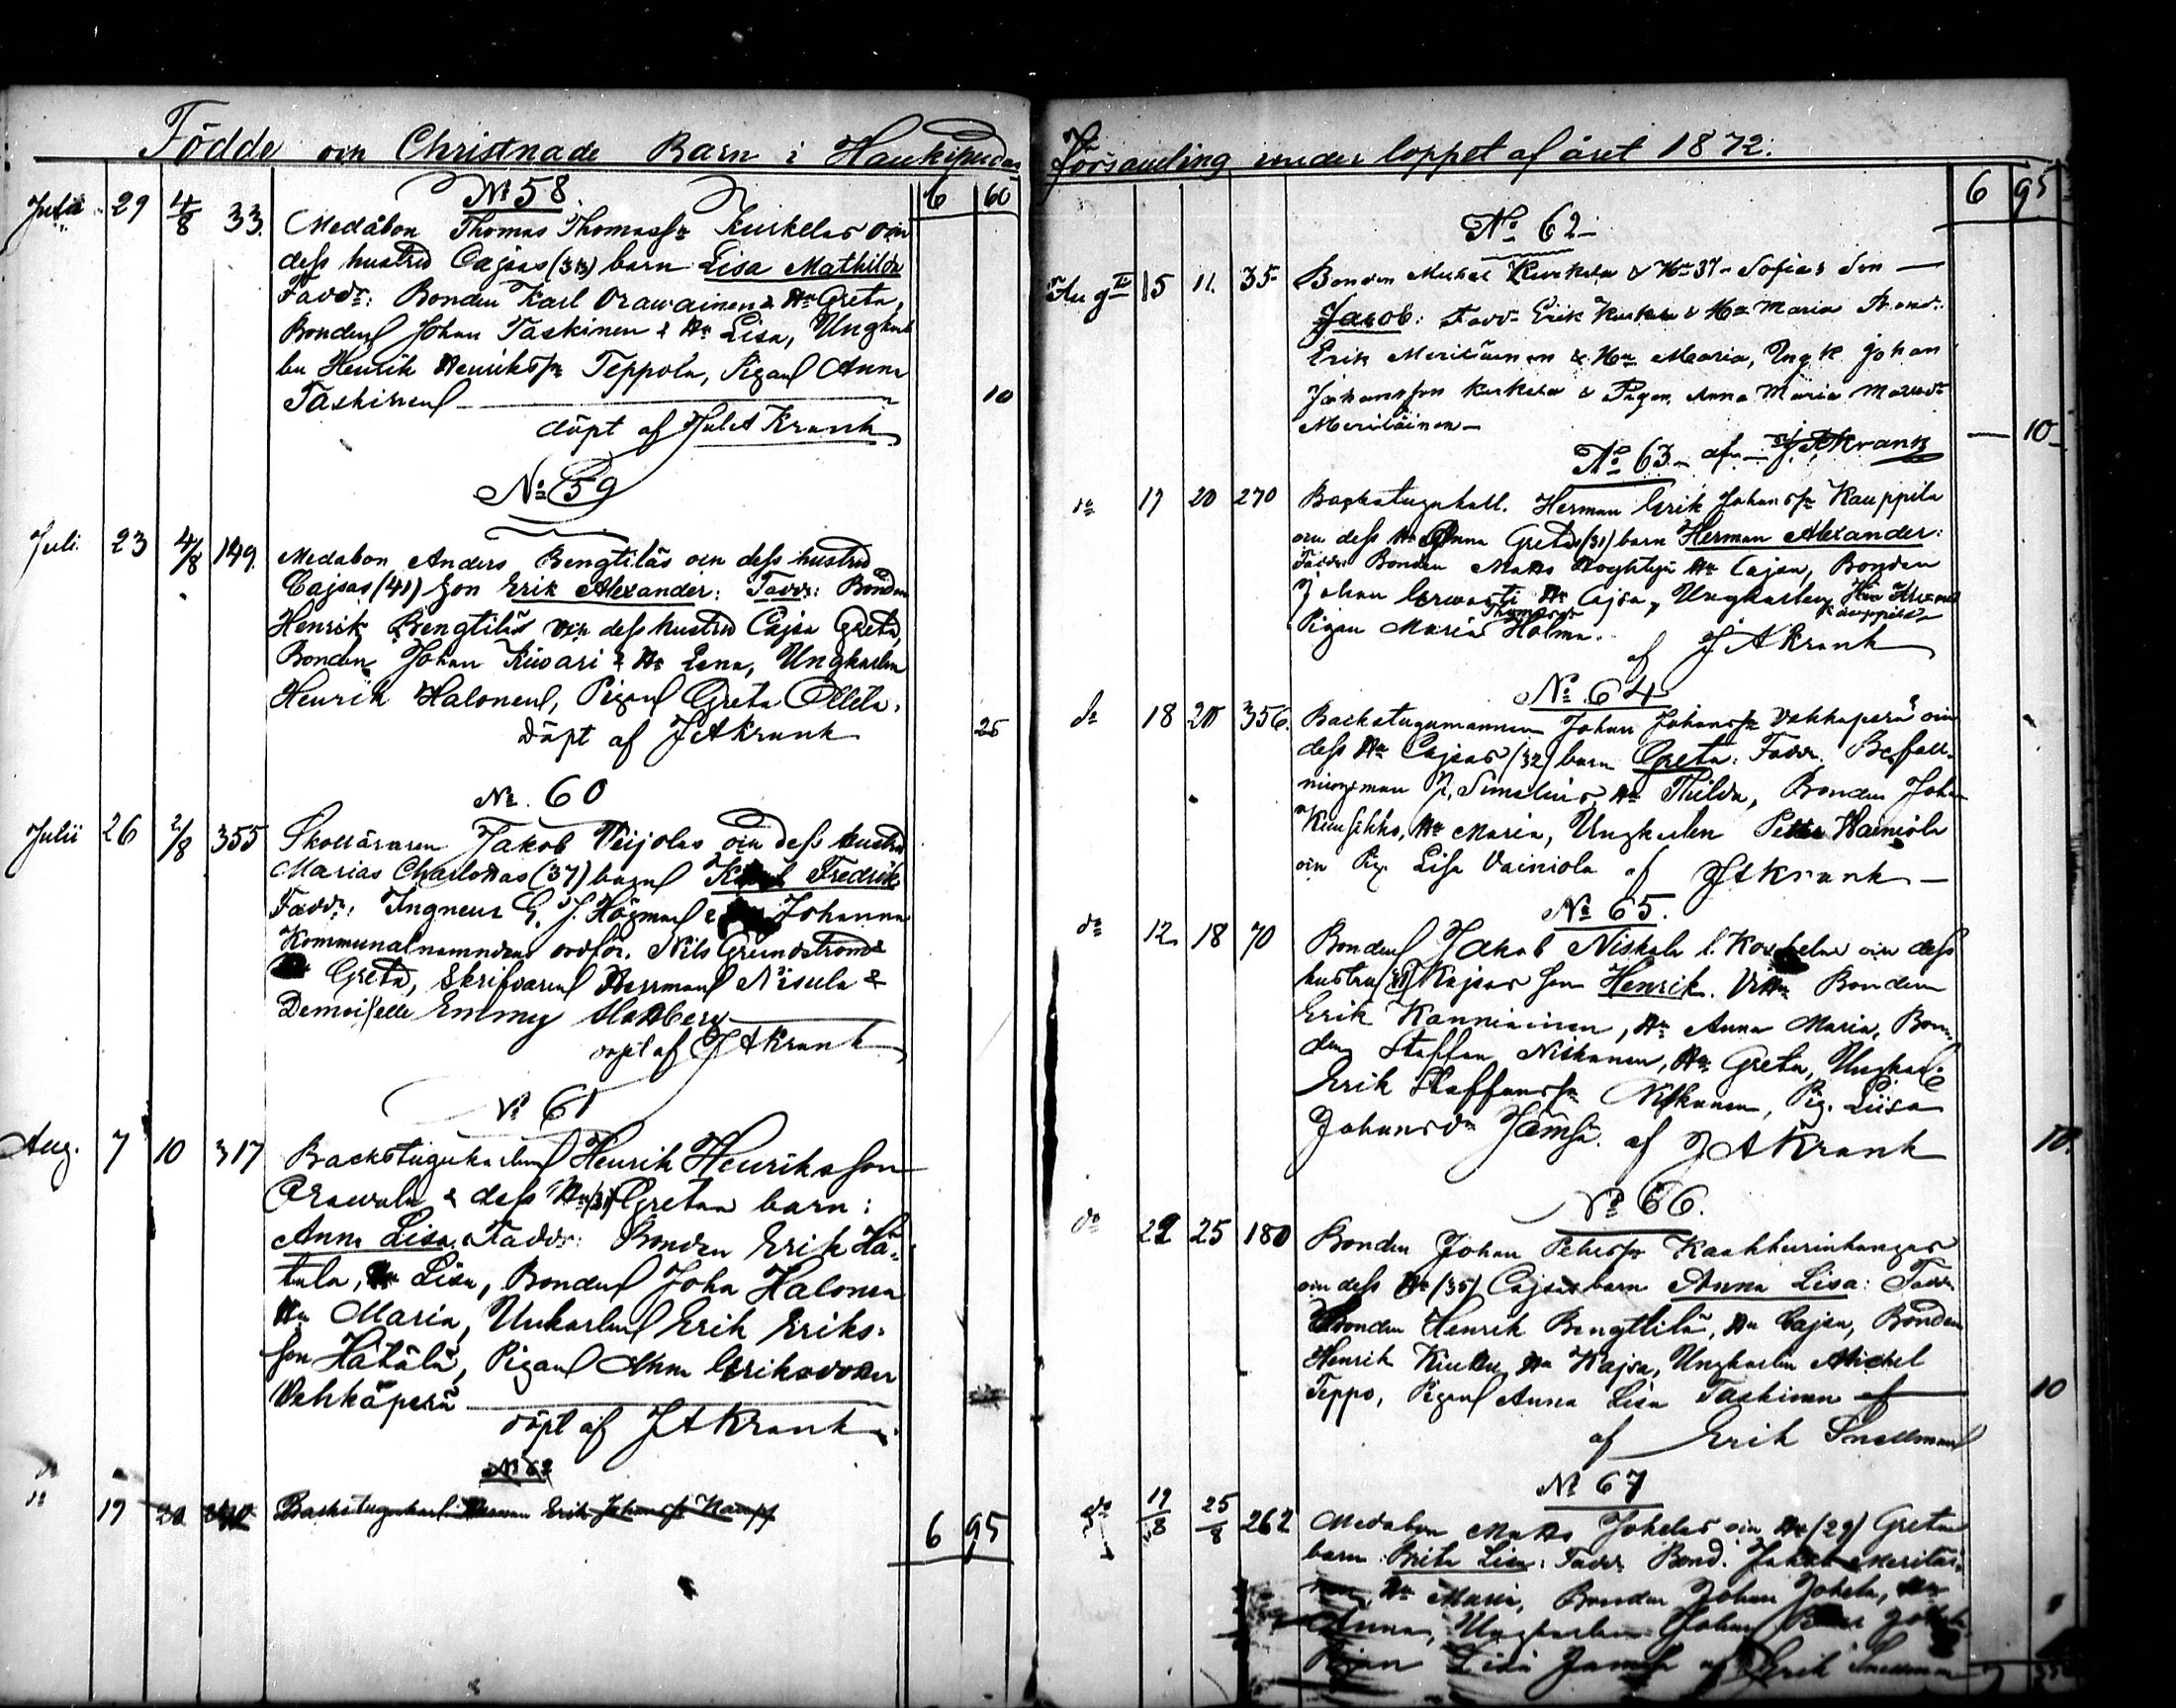 Födde och Christnade Barn i Haukipudas
6 60
No 58.
Julii 29 4/8 33. Medåbon Thomas Thomasson Kurkelas och
dess hustru Cajsas (33) barn Lisa Mathilda
Faddr: Bonden Karl Orawainen & Hu Greta,
Bonden Johan Taskinen & Hu Lisa, Ungkarlen
Henrik Henriksson Teppola, Pigan Anna
Taskinen 10
döpt af Jul A Krank
No 59
Juli 23 4/8 149. Medåbon Anders Bengtiläs och dess hustru
Cajsas (41) Son Erik Alexander: Faddr: Bonden
Henrik Bengtilä och dess hustru Cajsa Greta,
Bonden Johan Kiwari & Hu Lena, Ungkarlen
Henrik Halonen, Pigan Greta Ollila.
döpt af J A Krank 25
No. 60
Julii 26 2/8 355 Skolläraren Jakob Weijolas och dess hustru
Marias Charlottas (37) barn Fredrik
Faddr: Ingneur G. J. Högman & Johanna
Kommunalnämndens ordför. Nils Grundström &
Greta, Skrifvaren Herrman Nisula &
Demoiselle Emmy Hallberg
döpt af J A Krank
No 61
Aug. 7 10 317 Backstugukarlen Henrik Henriksson
Orawala & dess Hu (31) Gretas barn:
Anna Lisa Faddr: Bonden Erik Hä-
tälä, Hu Lisa, Bonden Joha Halonen
Hu Maria, Unkarlen Erik Eriks-
son Hätälä, Pigan Anna Eriksdotter
Vehkaperä
döpt af J A Krank
No 62
do 19 20 270 Backstugukarl. Herman Erik Johansson Kaupp
6 95
församling under loppet af året 1872.
6 95
No 62
Augti 15 11. 35 Bonden Mickel Kurkela & Hu 37 Sofias Son
Jacob: Fadd. Erik Kurkela & Hu Maria Bond:
Erik Meriläinen & Hu Maria, Ungk. Johan
Johansson Kurkela & Pigan Anna Maria Mattsdr
Meriläinen 10
No 63 af J A Krank
do 17 20 270 Backstugukarl. Herman Erik Johansson Kauppila
och dess Hu Anna Gretas (31) barn Herman Alexander:
Faddr: Bonden Matts Hu Cajsa, Bonden
Johan Erwasti Hu Cajsa, Ungkarlen
Kauppila
Pigan Maria Thomasdr Holma.
af J A Krank
No 64
do 18 20 356. Backstugumannen Johan Johansson Vehkaperä och
dess Hu Cajsas (32) barn Greta: Faddr. Befall-
ningsman P. Simelius, Hu Thilda, Bonden Johan
Kuusikko, Hu Maria, Ungkarlen Petter Wainiola
och Pig. Lisa Vainiola af J A Krank
No 65.
do 12 18 70 Bonden Jakob Niskala l. och dess
hustru Kajsas son Henrik. Vittn Bonden
Erik Kanniainen, Hu Anna Maria, Bon-
den Staffan Niskanen, Hu Greta, Ungkarl.
Erik Staffansson Niskanen, Pig. Liisa
Johansdr Jämsä. af J A Krank 10.
No 66.
do 22 25 180 Bonden Johan Petersson Kaakkurinkangas
och dess Hu (35) Cajsas barn Anna Lisa: Faddr
Bonden Henrik Bengttilä, Hu Cajsa, Bonden
Henrik Hu Kajsa, Ungkarlen Michel
Teppo, Pigan Anna Lisa Taskinen af 10
af Erik Snellman
No 67
do 19/8 25/8 262 Medåbon Matts Jokelas och Hu (29) Gretas
barn Brita Lisa: Faddr Bond. Jakob Meriläi-
nen, Hu Maria, Bonden Johan Jokela, Hu
Anna, Ungkarlen Johan Jokela
Pigan Lisa Jämsä af Erik Snellman